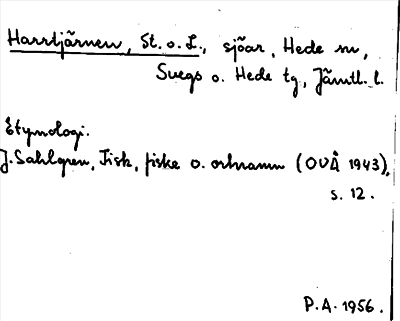 Harrtjärnen, St. o. L., sjöar, Hede sn,
Svegs o. Hede tg, Jämtl. l.
Etymologi.
J. Sahlgren, Fisk, fiske o. ortnamn (OUÅ 1943),
s. 12.
P.A. 1956.